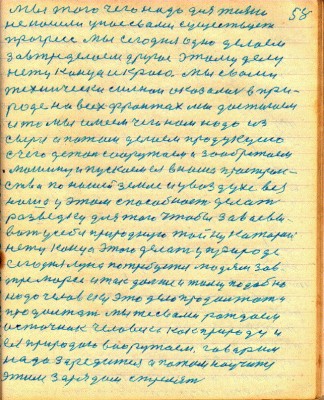 58
мы этого чего надо для жизни
не имели у нас вами существует
прогресс мы сегодня одно делаем
завтра делаем другое этому делу
нету конца и краю. мы с вами
технически сильны оказались в при-
роде на всех фронтах мы достигаем
и то мы имеем чего нам надо из
сырья а потом делаем продукцию
с чего детали сооружаем и изобретаем
машину и пускаем ея в наше простран-
ство по нашей земле и у воздухе вез
нашу этом способности делать
разведку для того чтобы завоевы-
вать у себя природную тайну которой
нету конца этого делать у природе
сегодня луна потребуется людям зав-
тра марсе и так далее и тому подобно
надо человеку это дело продолжать а
продолжать мы с вами рождаем
источник человека как природу и
ея природою вооружаем. говорим
надо зарядится а потом научить
этим зарядом стрелять